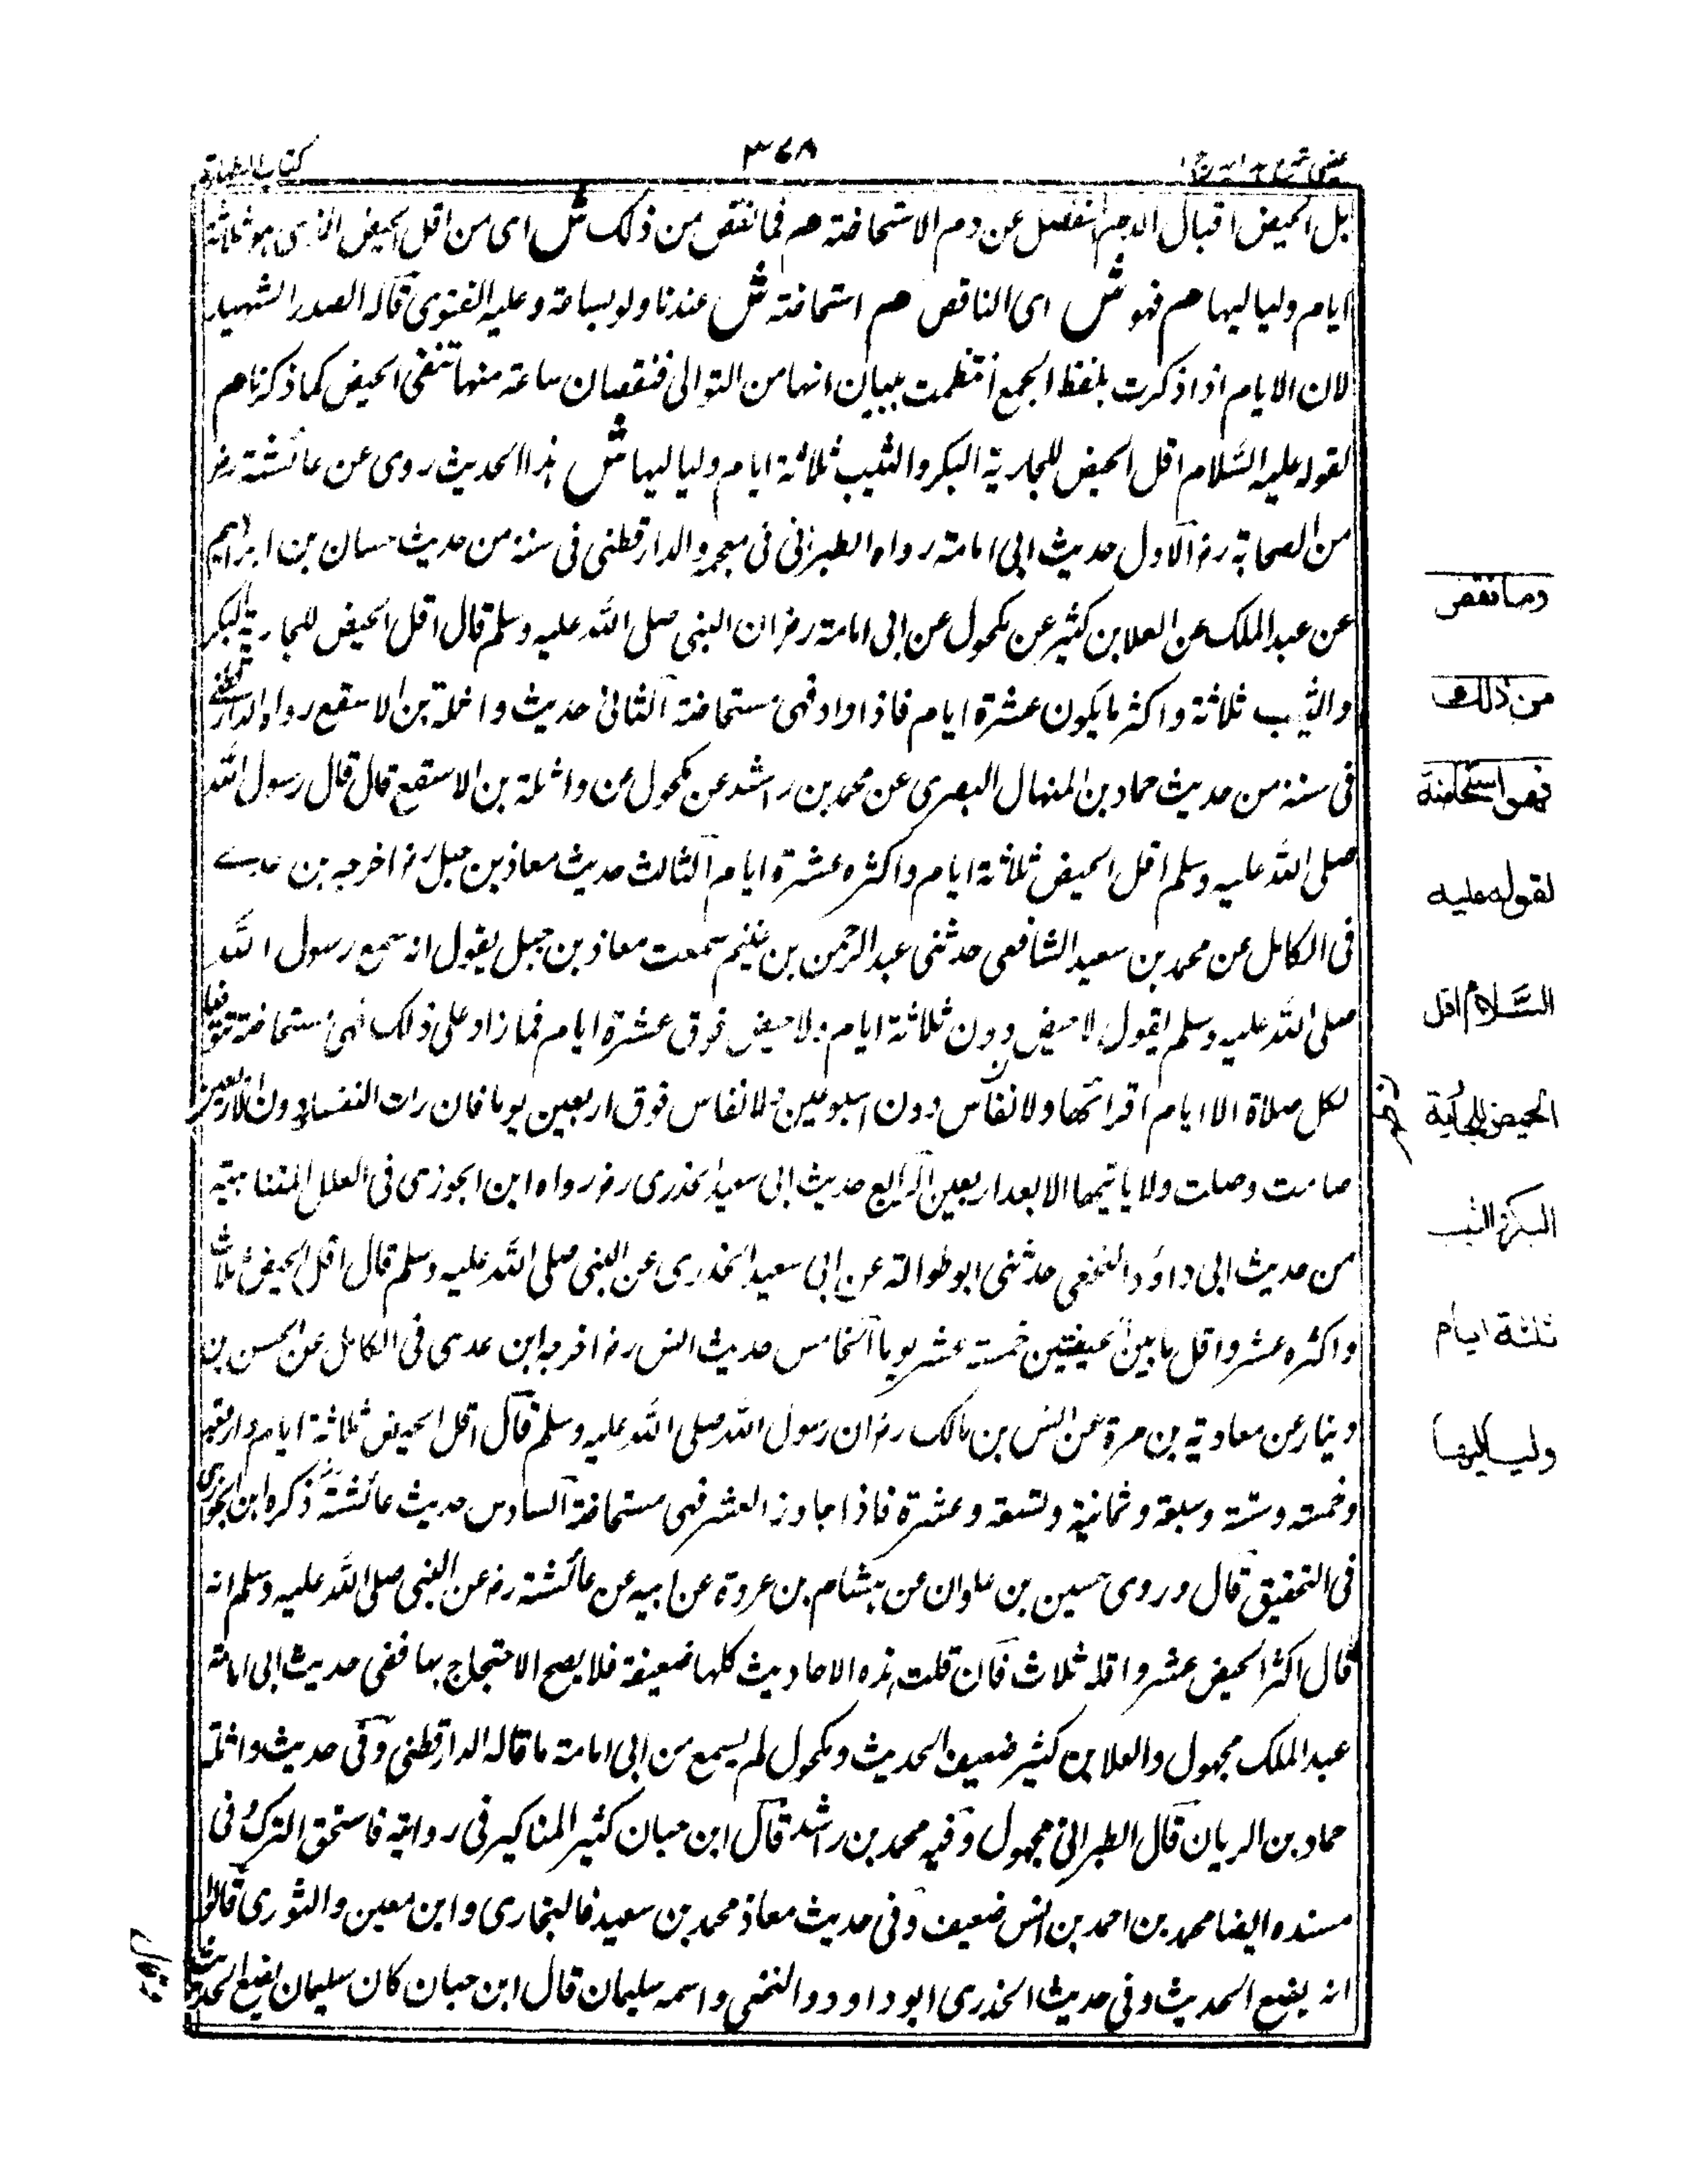 عینی شرح ہدایہ ج ١
٣٦٨
کتاب الطهارة
بل الحيض اقبال الدم المنفصل عن دم الاستحاضة هم فما نقص من ذلك ش اى من اقل الحيض الذى هو ثلاثة
ايام ولياليها هم فهو ش اى الناقص هم استحاضة ش عندنا ولو بساعة وعليه الفتوى قاله الصدر الشهيد
لان الايام اذا ذكرت بلفظ الجمع انتظمت ببيان انها من التوالى فنقصان ساعة منها تنفى الحيض كما ذكرنا هم
لقوله عليه السلام اقل الحيض للجارية البكر والثيب ثلاثة ايام ولياليها ش هذا الحديث روى عن عائشة رض
من الصحابة رض الاول حديث ابى امامة رواه الطبرانى فى معجمه والدارقطنى فى سننه من حديث حسان بن ابراهيم
عن عبد الملك عن العلا بن كثير عن مكحول عن ابى امامة رض ان النبى صلى الله عليه وسلم قال اقل الحيض للجارية البكر
والثيب ثلاثة واكثر ما يكون عشرة ايام فاذا زاد فهى مستحاضة الثانى حديث واثلة بن الاسقع رواه الدارقطنى
فى سننه من حديث حماد بن المنهال البصرى عن محمد بن راشد عن مكحول عن واثلة بن الاسقع قال قال رسول الله
صلى الله عليه وسلم اقل الحيض ثلاثة ايام واكثره عشرة ايام الثالث حديث معاذ بن جبل رض اخرجه بن عدے
فى الكامل عن محمد بن سعيد الشافعى حدثنى عبد الرحمن بن غنيم سمعت معاذ بن جبل يقول انه سمع رسول الله
صلى الله عليه وسلم يقول لا حيض دون ثلاثة ايام ولا حيض فوق عشرة ايام فما زاد على ذلك فهى مستحاضة تتوضأ
لكل صلاة الا ايام اقرائها ولا نفاس دون اسبوعين ولا نفاس فوق اربعين يوما فان رات النفساء دون الاربعين
صامت وصلت ولا ياتيها الا بعد اربعين الرابع حديث ابى سعيد الخدرى رض رواه ابن الجوزى فى العلل المتناهية
من حديث ابى داؤد النخعى حدثنى ابو طوالة عن ابى سعيد الخدرى عن النبى صلى الله عليه وسلم قال اقل الحيض ثلاث
واكثره عشر واقل ما بين الحيضتين خمسة عشر يوما الخامس حديث انس رض اخرجه ابن عدى فى الكامل عن الحسن بن
دينار عن معاوية بن مرة عن انس بن مالك رض ان رسول الله صلى الله عليه وسلم قال اقل الحيض ثلاثة ايام واربعة
وخمسة وستة وسبعة وثمانية وتسعة وعشرة فاذا جاوز العشر فهى مستحاضة السادس حديث عائشة رض ذكره ابن الجوزى
فى التحقيق قال وروى حسين بن علوان عن هشام بن عروة عن ابيه عن عائشة رض عن النبى صلى الله عليه وسلم انه
قال اكثر الحيض عشر واقله ثلاث فان قلت هذه الاحاديث كلها ضعيفة فلا يصح الاحتجاج بها ففى حديث ابى امامة
عبد الملك مجهول والعلا بن كثير ضعيف الحديث ومكحول لم يسمع من ابى امامة ما قاله الدارقطنى وفى حديث واثلة
حماد بن الريان قال الطبرانى مجهول وفيه محمد بن راشد قال ابن حبان كثير المناكير فى روايته فاستحق الترك وفى
مسنده ايضا محمد بن احمد بن انس ضعيف وفى حديث معاذ محمد بن سعيد فالبخارى وابن معين والثورى قالوا
انه يضع الحديث وفى حديث الخدرى ابو داودو النخعى واسمه سليمان قال ابن حبان كان سليمان يضع الحديث
وما نقص
من ذلك
فهو استحاضة
لقوله عليه
السَّلام اقل
الحيض للجارية
البكر والثيب
ثلثة ايام
ولياليها